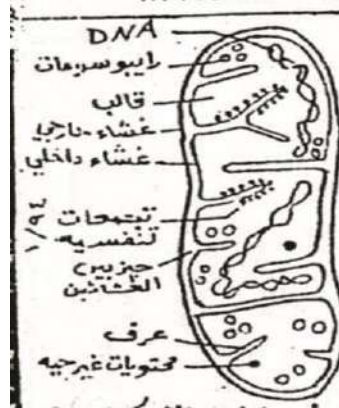 DNA
رايبوسومات
قالب
غشاء خارجي
غشاء داخلي
تجمعات
تنفسية
حيز بين
الغشائين
عرف
محتويات غير حيه
١/٩٤